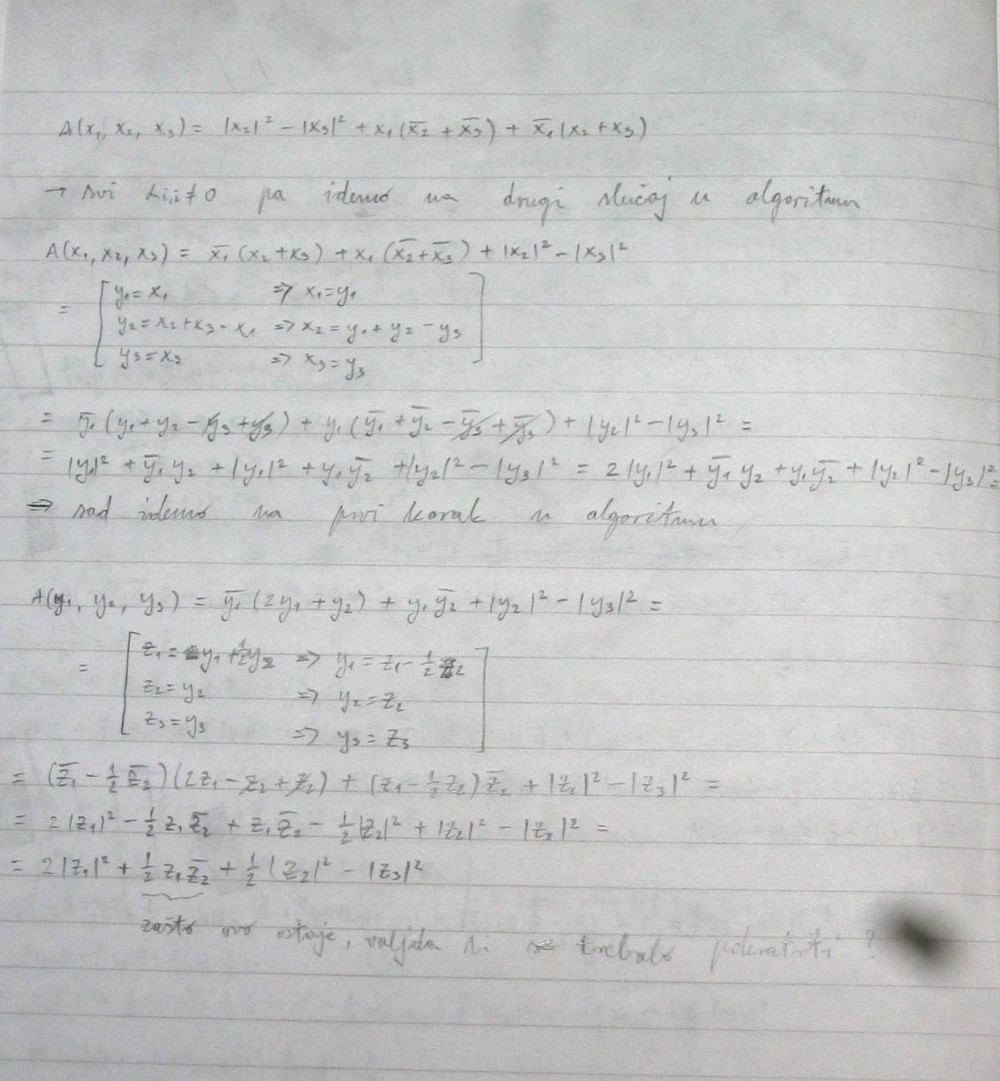 A(x₁, x₂, x₃) = |x₂|² - |x₃|² + x₁(x̅₂ + x̅₃) + x̅₁(x₂ + x₃)
→ svi αi,i ≠ 0 pa idemo na drugi slučaj u algoritmu
A(x₁, x₂, x₃) = x̅₁(x₂+x₃) + x₁(x̅₂+x̅₃) + |x₂|² - |x₃|²
= [ y₁ = x₁ => x₁ = y₁
y₂ = x₂+x₃-x₁ => x₂ = y₁+y₂-y₃
y₃ = x₃ => x₃ = y₃ ]
= y̅₁(y₁+y₂-y₃+y₃) + y₁(y̅₁+y̅₂-y̅₃+y̅₃) + |y₂|² - |y₃|² =
= |y₁|² + y̅₁y₂ + |y₁|² + y₁y̅₂ + |y₂|² - |y₃|² = 2|y₁|² + y̅₁y₂ + y₁y̅₂ + |y₂|² - |y₃|² =
=> sad idemo na prvi korak u algoritmu
A(y₁, y₂, y₃) = y̅₁(2y₁+y₂) + y₁y̅₂ + |y₂|² - |y₃|² =
= [ z₁ = y₁ + ½y₂ => y₁ = z₁ - ½z₂
z₂ = y₂ => y₂ = z₂
z₃ = y₃ => y₃ = z₃ ]
= (z̅₁ - ½z̅₂)(2z₁ - z₂ + z₂) + (z₁ - ½z₂)z̅₂ + |z₂|² - |z₃|² =
= 2|z₁|² - ½z₁z̅₂ + z₁z̅₂ - ½|z₂|² + |z₂|² - |z₃|² =
= 2|z₁|² + ½z₁z̅₂ + ½|z₂|² - |z₃|²
zašto ovo ostaje, valjda bi se trebalo pokratiti ?